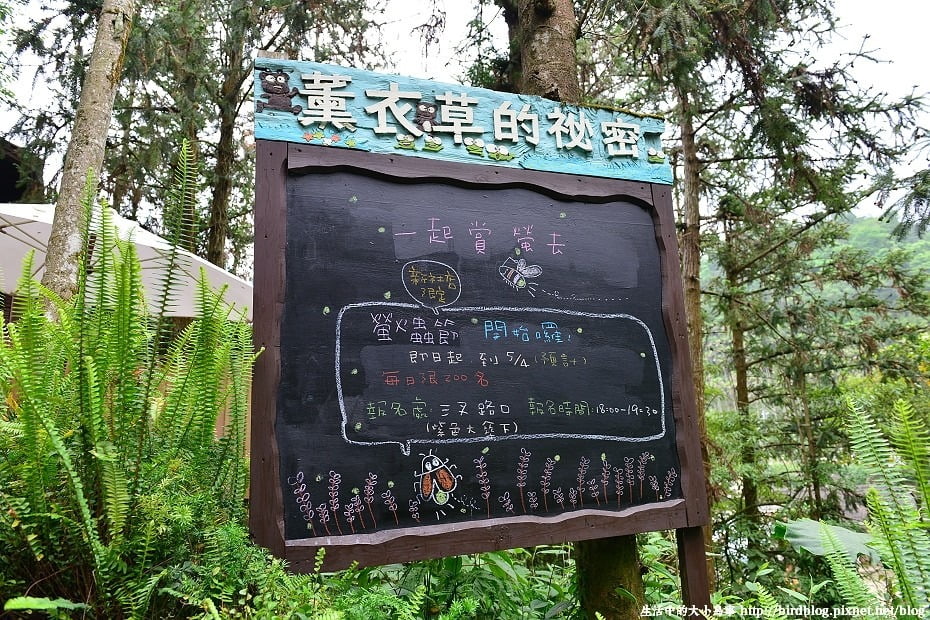 薰衣草的祕密
一起賞螢去
新社店
限定
螢火蟲節 開始囉!
即日起 到 5/4 (預計)
每日限200名
報名處:三叉路口 報名時間:18:00-19:30
(紫色大傘下)
生活中的大小鳥事 http://birdblog.pixnet.net/blog